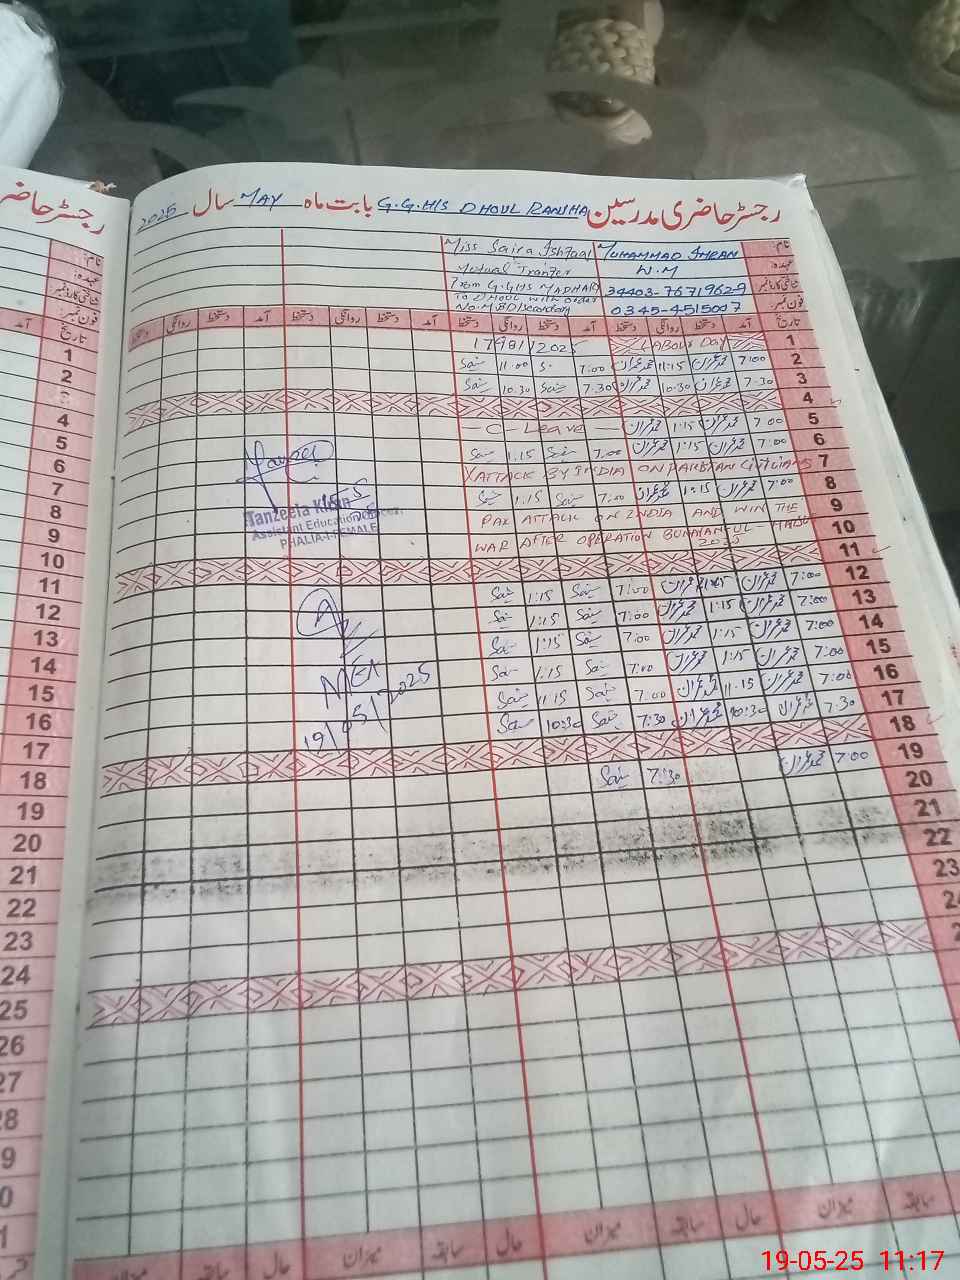 رجسٹر حاضری مدرسین G.G.H/S DHOUL RANJHA بابت ماہ MAY سال 2025
رجسٹر حاضر
نام:
عہدہ:
شناختی کارڈ نمبر:
فون نمبر:
تاریخ
Miss Saira Ashfaq
Mutual Tranfer
From G.GHS MADHAR
TO DHOUL with order
MUHAMMAD IMRAN
W.M
34403-7671962-9
0345-4515007
آمد دستخط روانگی دستخط آمد دستخط روانگی دستخط آمد دستخط روانگی دستخط آمد دستخط روانگی دستخط
1 LABOUR DAY 17981/2025
2 7:00 محمد عمران 11:15 محمد عمران 7:00 11:00
3 7:30 محمد عمران 10:30 محمد عمران 7:30 10:30
4
5 7:00 محمد عمران 1:15 محمد عمران — C — Leave —
6 7:00 محمد عمران 1:15 محمد عمران 7:00 1:15
7 ATTACK BY INDIA ON PAKISTAN CIVILIANS
8 7:00 محمد عمران 1:15 محمد عمران 7:00 1:15
9 PAK ATTACK ON INDIA AND WIN THE
10 WAR AFTER OPERATION BUNYANUL-MARSUS 2025
11
12 7:00 محمد عمران محمد عمران 7:00 1:15
13 7:00 محمد عمران 1:15 محمد عمران 7:00 1:15
14 7:00 محمد عمران 1:15 محمد عمران 7:00 1:15
15 7:00 محمد عمران 1:15 محمد عمران 7:00 1:15
16 7:00 محمد عمران 11.15 محمد عمران 7:00 11.15
17 7:30 محمد عمران 10:30 محمد عمران 7:30 10:30
18
19 7:00 محمد عمران 7:30
20
21
22
23
Tanzeela Khan
Assistant Education Officer
PHALIA-FEMALE
MEA
19/05/2025
1
2
4
5
6
7
8
9
10
11
12
13
14
15
16
17
18
19
20
21
22
23
24
25
26
27
28
سابقہ میزان حال سابقہ میزان حال سابقہ میزان حال
19-05-25 11:17